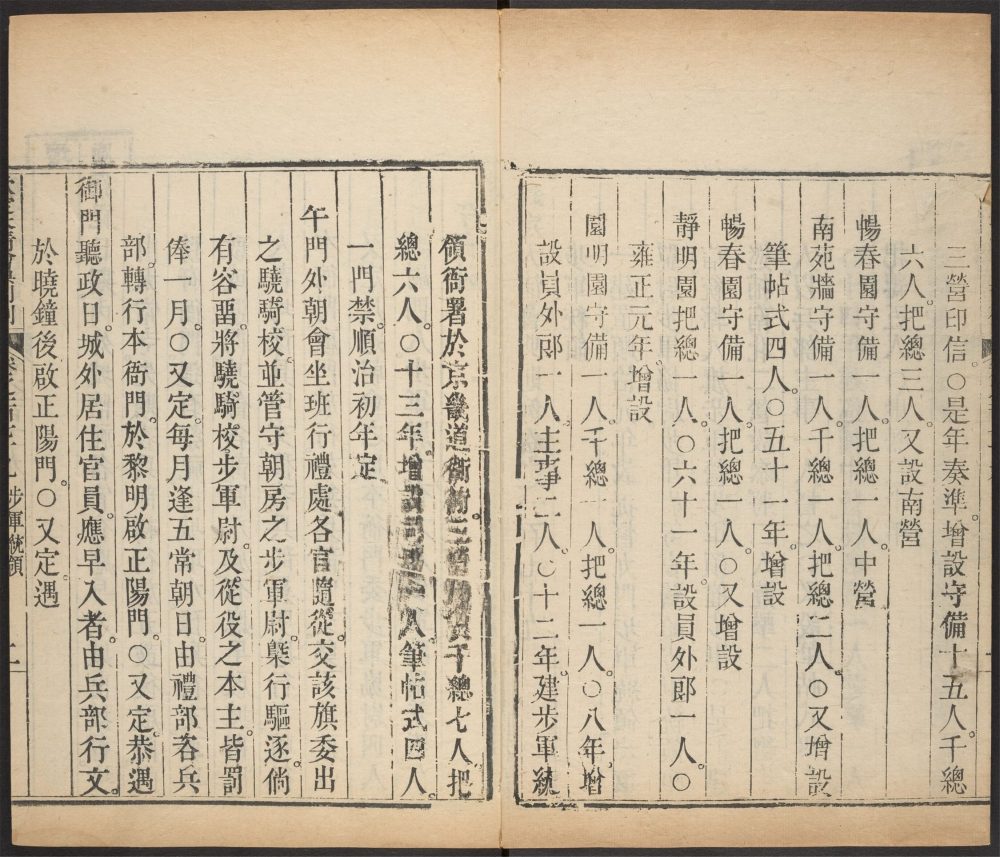 三營印信○是年奏準增設守備十五人千總
六人把總三人又設南營
暢春園守備一人把總一人中營
南苑牆守備一人千總一人把總二人○又增設
筆帖式四人○五十一年增設
暢春園守備一人把總一人○又增設
靜明園把總一人○六十一年設員外郎一人○
雍正元年增設
圓明園守備一人千總一人把總一人○八年增
設員外郎一人主事二人○十二年建步軍統
領衙署於京畿道衚衕千總七人把
總六人○十三年增設司人筆帖式四人
一門禁順治初年定
午門外朝會坐班行禮處各官隨從交該旗委出
之驍騎校並管守朝房之步軍尉槩行驅逐倘
有容畱將驍騎校步軍尉及從役之本主皆罰
俸一月○又定每月逢五常朝日由禮部咨兵
部轉行本衙門於黎明啟正陽門○又定恭遇
御門聽政日城外居住官員應早入者由兵部行文
於曉鐘後啟正陽門○又定遇
步軍統領
二